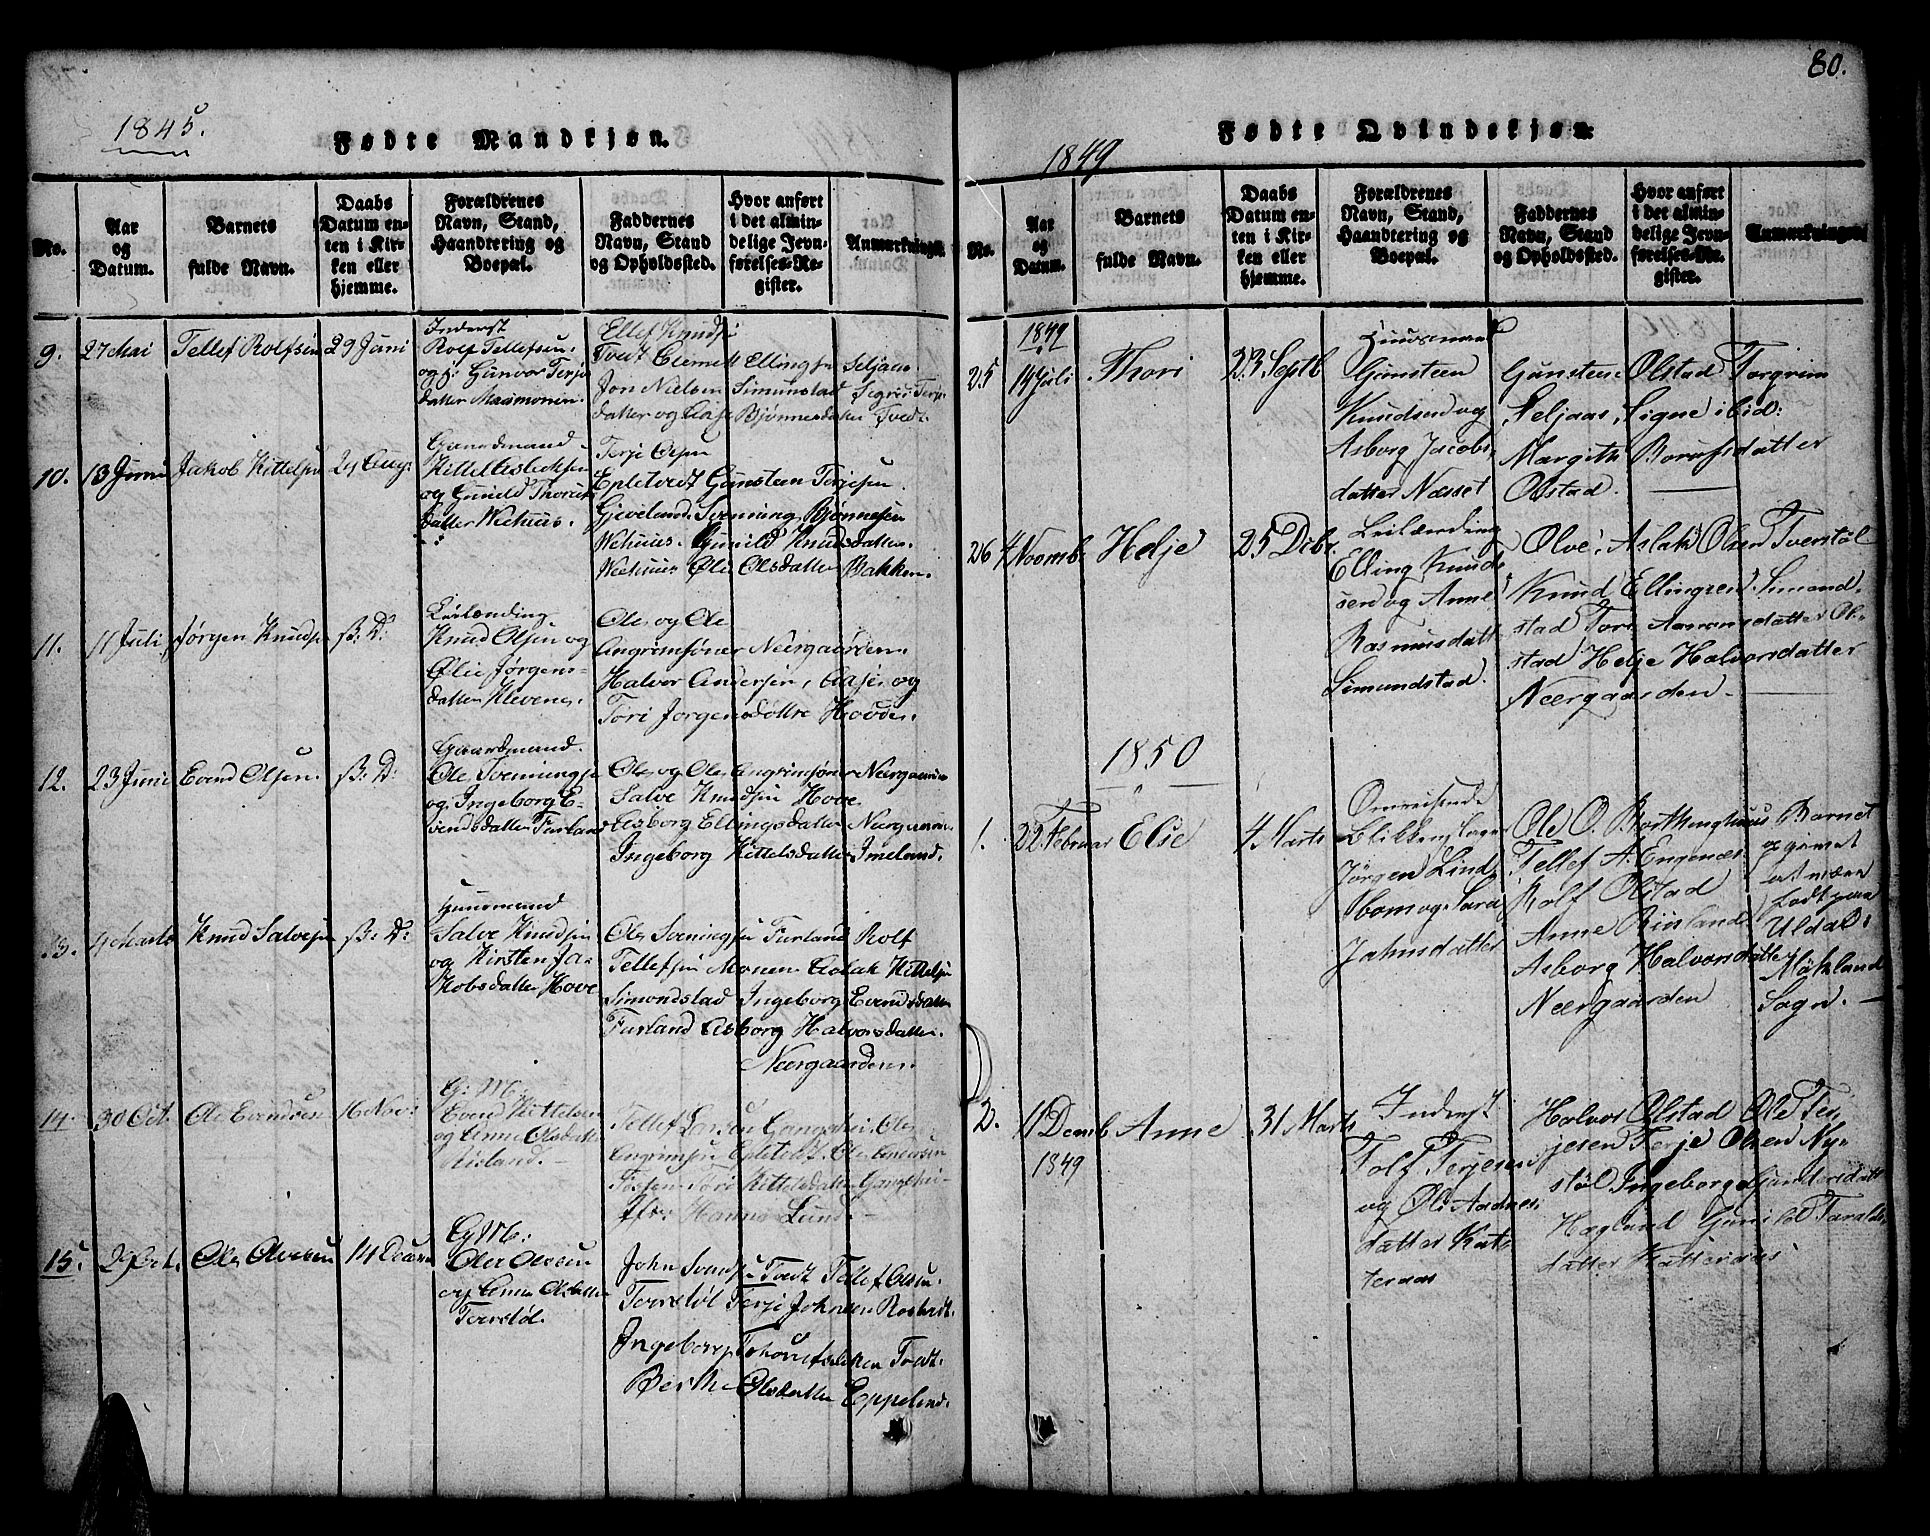 1845.
Fødte Mandkjøn.
No.
Aar
og
Datum.
Barnets
fulde Navn.
Daabs
Datum en-
ten i Kir-
ken eller
hjemme.
Forældrenes
Navn, Stand,
Haandtering og
Boepæl.
Faddernes
Navn, Stand
og Opholdssted.
Hvor anført
i det almin-
delige Jevn-
førelses-Re-
gister.
Anmærkninger.
9.
27 Mai
Tellef Rolfsen
29 Juni
Inderst
Rolf Tellefsen
og Gunvor Terje
datter
Ellef Knuds
Tvedt Clemet Ellingsen Seljaas
Jon Nielsen Simunstad Sigrei Terje
datter og Aase Bjønnesdatter Tvedt.
10.
13 Juni
Jakob Kittelsen
24 Aug:
Gaardmand
Kittel Aslaksen
og Gunild
datter Wehuus.
Terje Olsen
Epletvedt Gunsteen Terjesen
Gjeveland. Svenning Bjønnesen
Wehuus. Gunild Knudsdatter
Wehuus Øli Olsdatter Bakken.
11.
11 Juli
Jørgen Knudsen
S: D:
Leilænding
Knud Olsen og
Ølie Jørgens-
datter Klevene.
Ole og Ole
Angrimsønner Neergaarden.
Halvor Andersen, Aase og
Tori Jørgensdøttre Hovde.
12.
23 Juni
Evend Olsen.
S: D:
Gaardmand.
Ole Svenningsen
og Ingeborg E-
vendsdatter Furland
Ole og Ole Angrimsønner Neergaarden
Salve Knudsen Hove
Asborg Ellingsdatter Neergaarden
Ingeborg Kittelsdatter Imeland.
13.
4 Marts
Knud Salvesen
S: D:
Huusmand
Salve Knudsen
og Kirsten Ja-
kobsdatter Hove
Ole Sveningsen Furland Rolf
Tellefsen Monen Aslak Kittelsen
Simondstad Ingeborg Evendsdatter
Furland Asborg Halvorsdatter
Neergaarden.
14.
30 Oct.
Ole Evendsen
16 Nov:
G: M:
Evend Kittelsen
og Anne Olsdatter
Risland.
Tellef Larsen Gangshei. Ole
Angrimsen Epletvedt. Ole Andersen
Tori Kittelsdatter Gangshei
Hanne Lund.
15.
29 Oct.
Ole Olvesen
14 Decem
G M:
Olve Olvesen
og Anne Olsdatter
Toerstøl.
John Svendsen Tvedt Tellef Olsen
Toerstøl Terje Johnsen
Ingeborg Tvedt.
Berthe Olsdatter Eppeland.
80.
Fødte Qvindekjøn.
1849
No.
Aar
og
Datum.
Barnets
fulde Navn.
Daabs
Datum en-
ten i Kir-
ken eller
hjemme.
Forældrenes
Navn, Stand,
Haandtering og
Boepæl.
Faddernes
Navn, Stand
og Opholdssted.
Hvor anført
i det almin-
delige Jevn-
førelses-Re-
gister.
Anmærkninger.
25
1849
14 Juli
Thori
23 Septb
Huusmand
Gunsteen
Knudsen og
Asborg Jacobs
datter Næsset
Gunsteen Olstad Torgrim
Seljaas, Signe ibid:
Margith Borufsdatter
Olstad.
26
4 Novmb.
Helje
25 Debr.
Leilænding
Elling Knud
sen og Anne
Rasmusdatt
Simundstad.
Olve, Aslak Olsen Tverstøl
Knud Ellingsen Simund
stad Tore Aasmunsdatter Ol-
stad Helje Halvorsdatter
Neergaarden.
1850
1.
22 Februar
Elie
4 Marts
Omreisende
blikkenslager
Jørgen Lind
bom og Sara
Jahnsdatter
Ole O. Borthenghuus
Tellef A. Engenæs
Rolf Olstad
Anne Risland
Asborg Halvorsdatter
Neergaarden
Barnet
opgivet
at være
født paa
Uldal:
Mökland
Sogn.
2.
11 Decmb
1849
Anne
31 Marts
Inderst
Tolf Terjesen
og Øli Aadnes
datter Kats
teraas
Halvor Olstad Ole Ter-
jesen Terje Olsen Ny-
støl Ingeborg Gundersdatt
Hagland Gunild Taralds
datter Katteraas